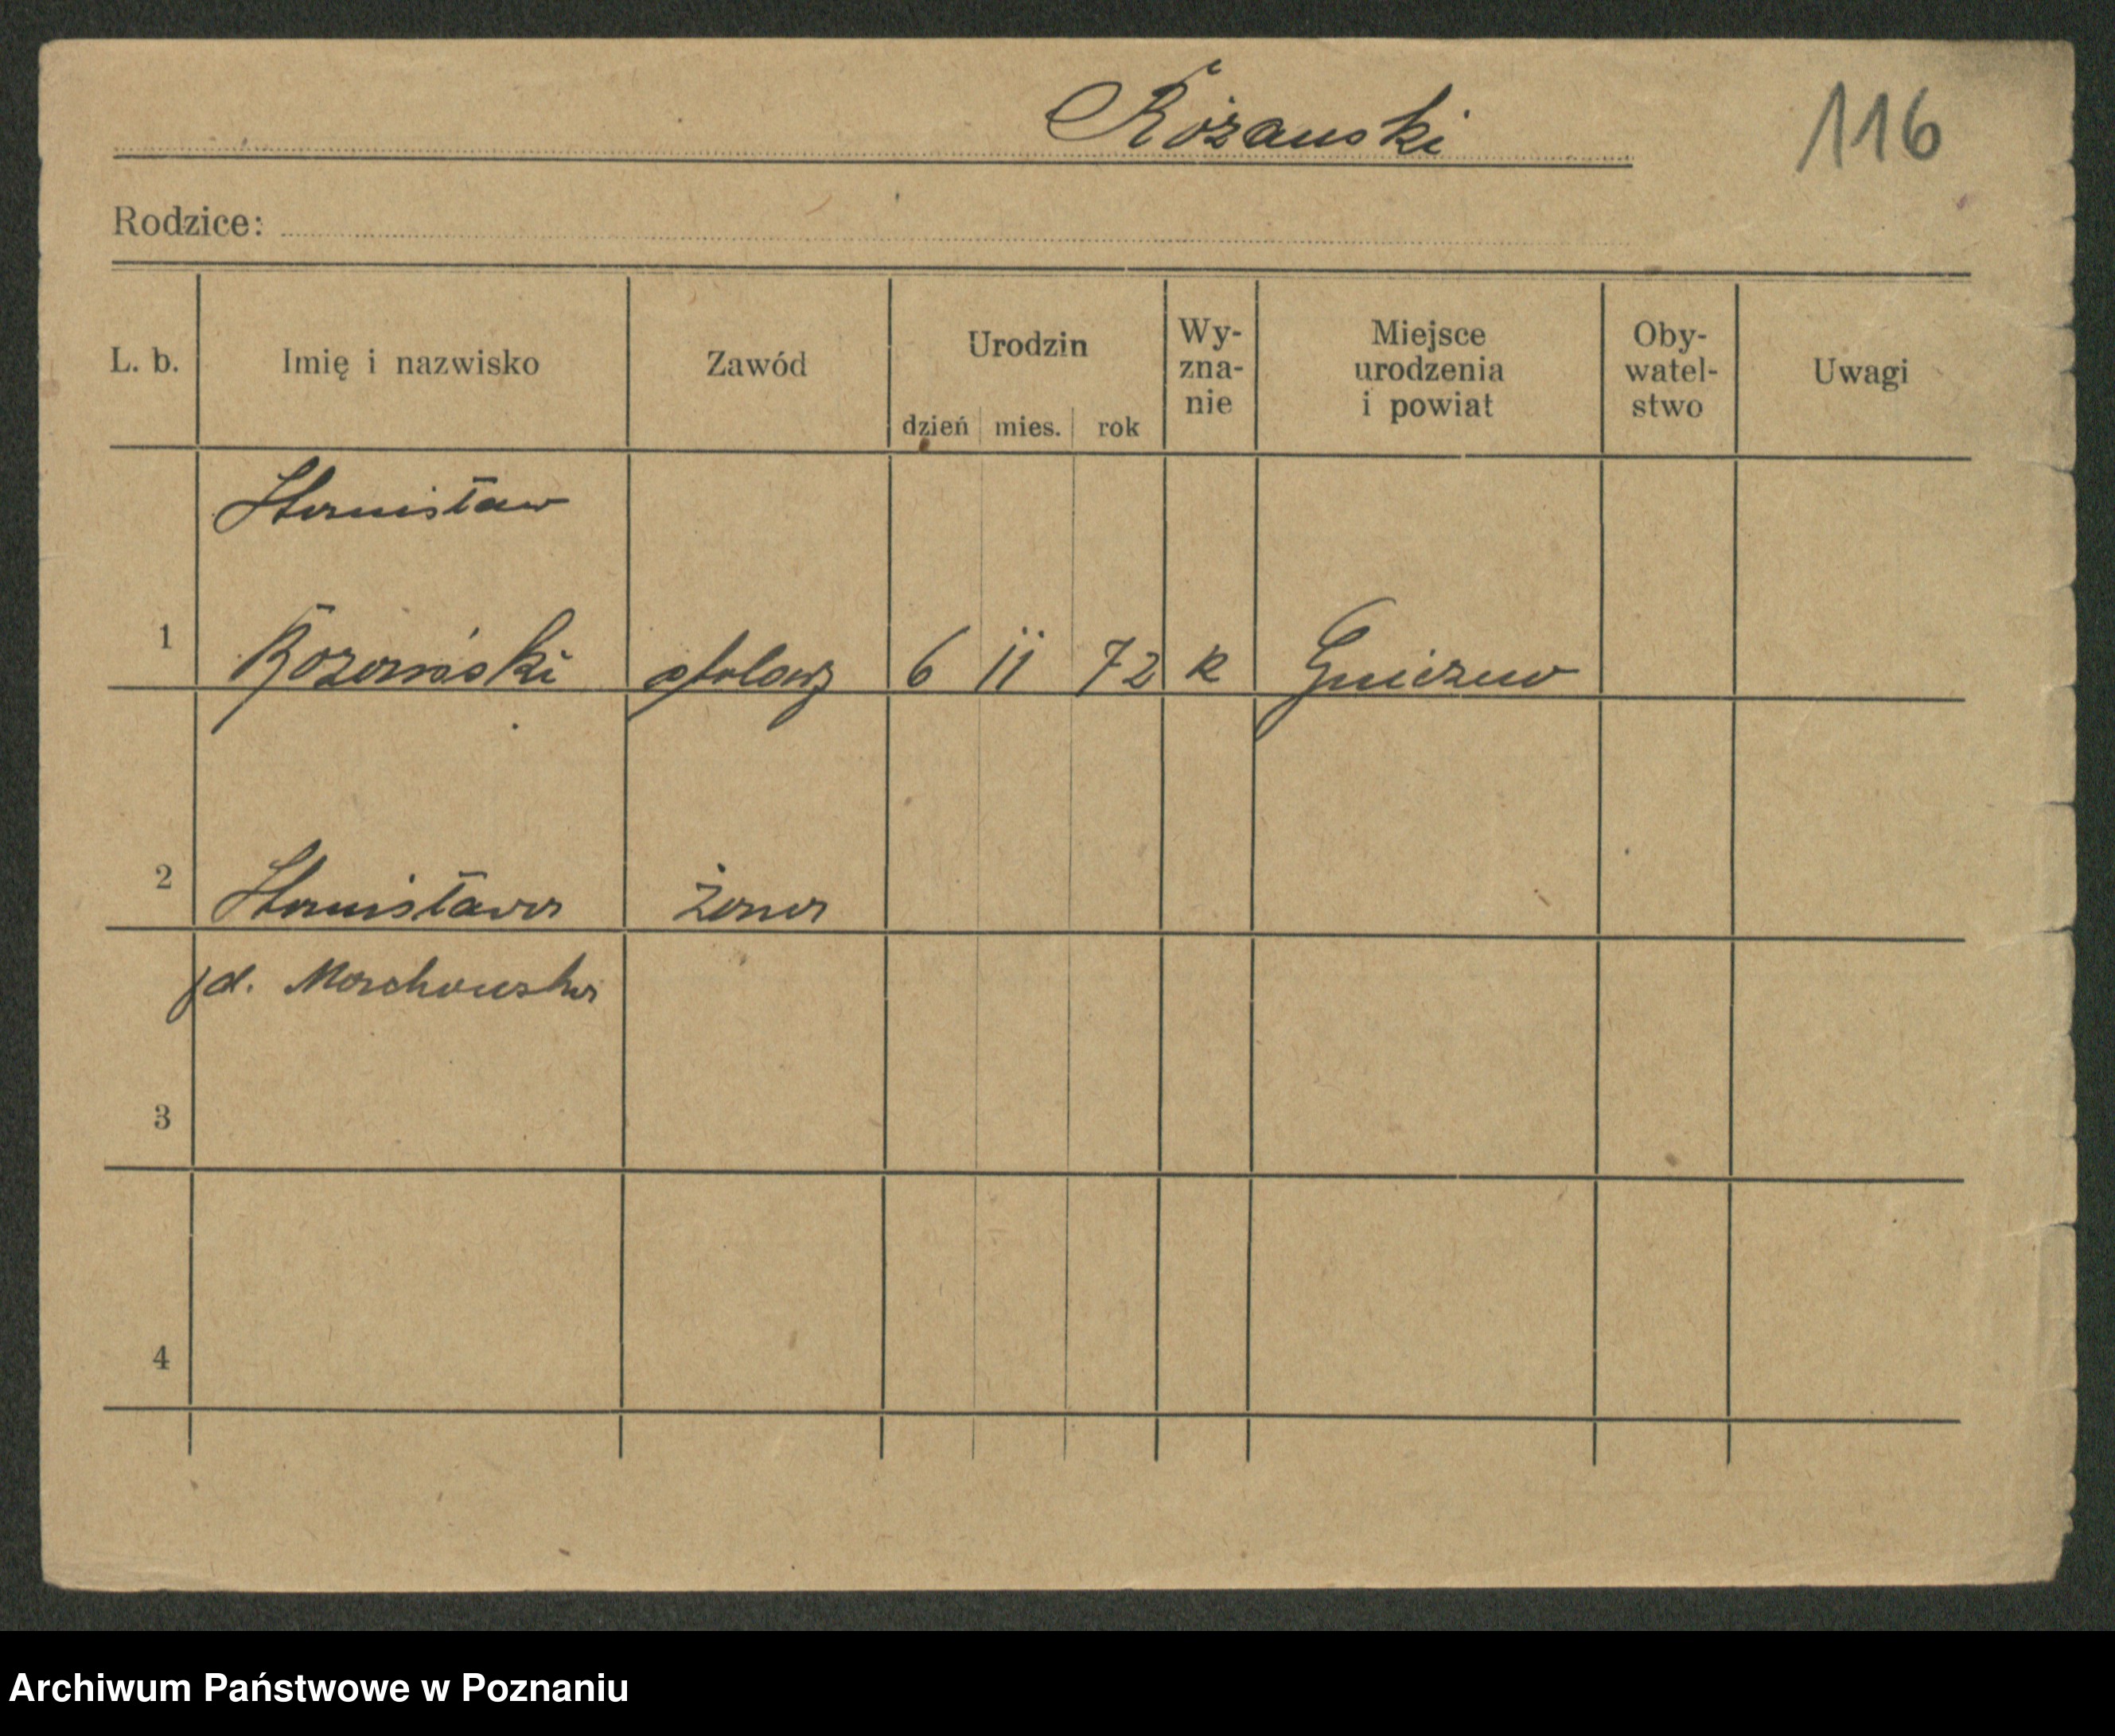 Różanski
116
Rodzice:
L. b. Imię i nazwisko Zawód Urodzin dzień mies. rok Wy-zna-nie Miejsce urodzenia i powiat Oby-watel-stwo Uwagi
Stanisław
1 Rozański stolarz 6 11 72 k Gniezno
2 Stanisława żona
d.
3
4
Archiwum Państwowe w Poznaniu